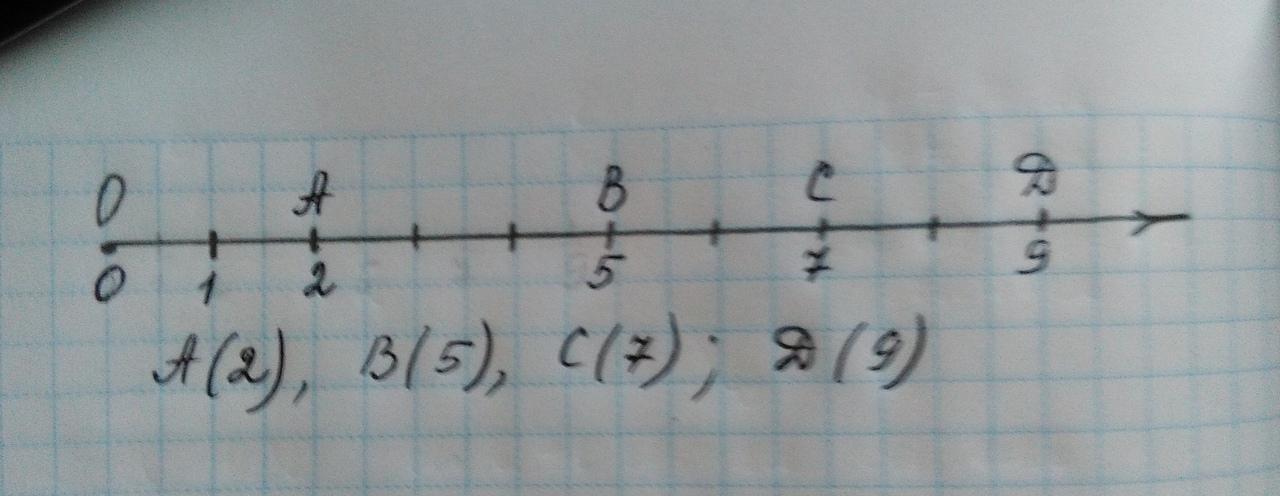 O A B C D
0 1 2 5 7 9
A(2), B(5), C(7); D(9)